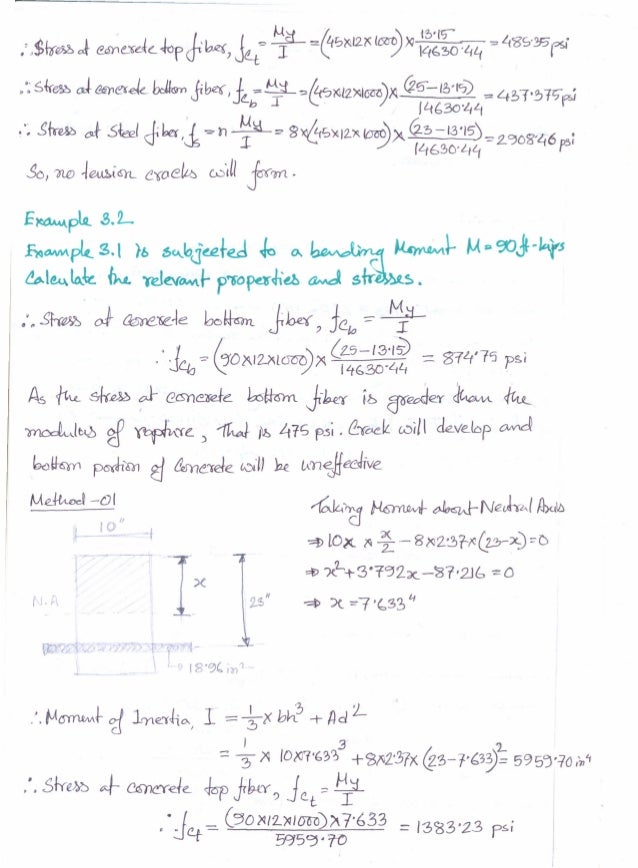 ∴ Stress at concrete top fiber, fct = My/I = (45×12×1000) × 13.15/14630.44 = 485.35 psi
∴ Stress at concrete bottom fiber, fcb = My/I = (45×12×1000) × (25-13.15)/14630.44 = 437.375 psi
∴ Stress at Steel fiber, fs = n My/I = 8×(45×12×1000) × (23-13.15)/14630.44 = 2908.46 psi
So, no tension cracks will form.
Example 3.2
Example 3.1 is subjected to a bending Moment M = 90 ft-kips
Calculate the relevant properties and stresses.
∴ Stress at concrete bottom fiber, fcb = My/I
∴ fcb = (90×12×1000) × (25-13.15)/14630.44 = 874.75 psi
As the stress at concrete bottom fiber is greater than the
modulus of rapture, That is 475 psi. Crack will develop and
bottom portion of Concrete will be uneffective
Method-01
10"
x
N.A
23"
18.96 in²
Taking Moment about Neutral Axis
⇒ 10x × x/2 - 8×2.37×(23-x) = 0
⇒ x²+3.792x-87.216 = 0
⇒ x = 7.633"
∴ Moment of Inertia, I = 1/3 × bh³ + Ad²
= 1/3 × 10×7.633³ + 8×2.37× (23-7.633)² = 5959.70 in⁴
∴ Stress at concrete top fiber, fct = My/I
∴ fct = (90×12×1000)×7.633/5959.70 = 1383.23 psi